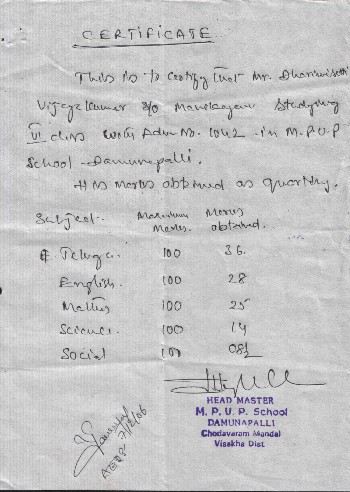 CERTIFICATE
This is to certify that Mr. Dharmisetti
Vijaya Kumar S/o Manikayam Studying
VI class with Adm No. 1042 - in M.P.U.P
School - Damunapalli.
His Marks obtained as quarterly.
Subject. Maximum Marks. Marks obtained.
Telugu. 100 36.
English. 100 28
Maths 100 25
Science. 100 14
Social 100 08½
HEAD MASTER
M. P. U. P. School
DAMUNAPALLI
Chodavaram Mandal
Visakha Dist.